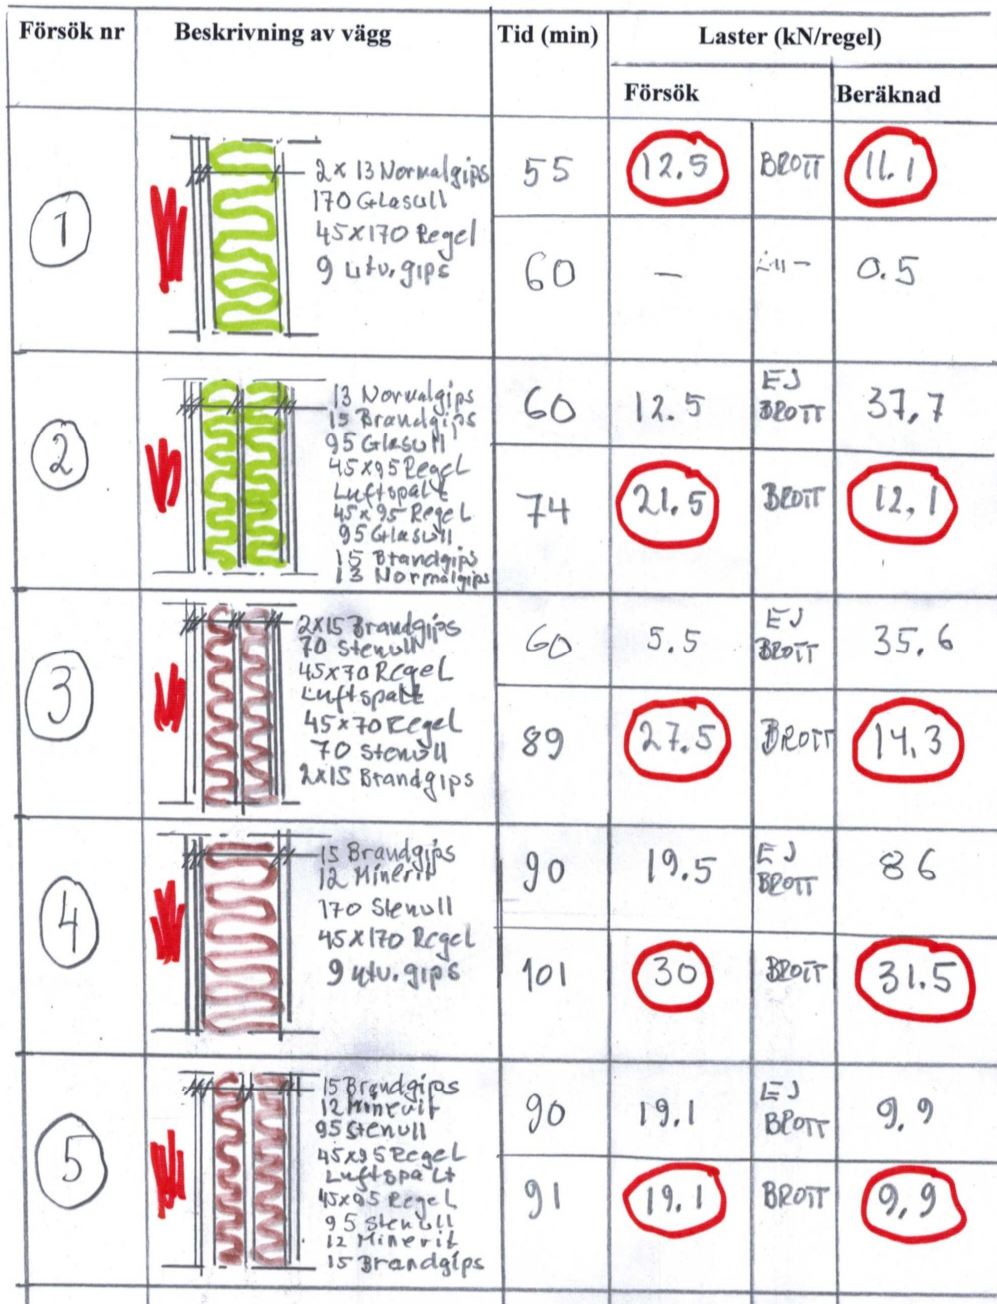 Försök nr Beskrivning av vägg Tid (min) Laster (kN/regel)
Försök Beräknad
1
2x13 Normalgips
170 Glasull
45x170 Regel
9 utv. gips
55 12.5 BROTT 11.1
60 — -11- 0.5
2
13 Normalgips
15 Brandgips
95 Glasull
45x95 Regel
Luftspalt
45x95 Regel
95 Glasull
15 Brandgips
13 Normalgips
60 12.5 EJ BROTT 37,7
74 21.5 BROTT 12,1
3
2x15 Brandgips
70 Stenull
45x70 Regel
Luftspalt
45x70 Regel
70 Stenull
2x15 Brandgips
60 5.5 EJ BROTT 35.6
89 27.5 BROTT 14.3
4
15 Brandgips
12 Minerit
170 Stenull
45x170 Regel
9 utv. gips
90 19.5 EJ BROTT 86
101 30 BROTT 31.5
5
15 Brandgips
12 Minerit
95 Stenull
45x95 Regel
Luftspalt
45x95 Regel
95 Stenull
12 Minerit
15 Brandgips
90 19.1 EJ BROTT 9,9
91 19.1 BROTT 9,9